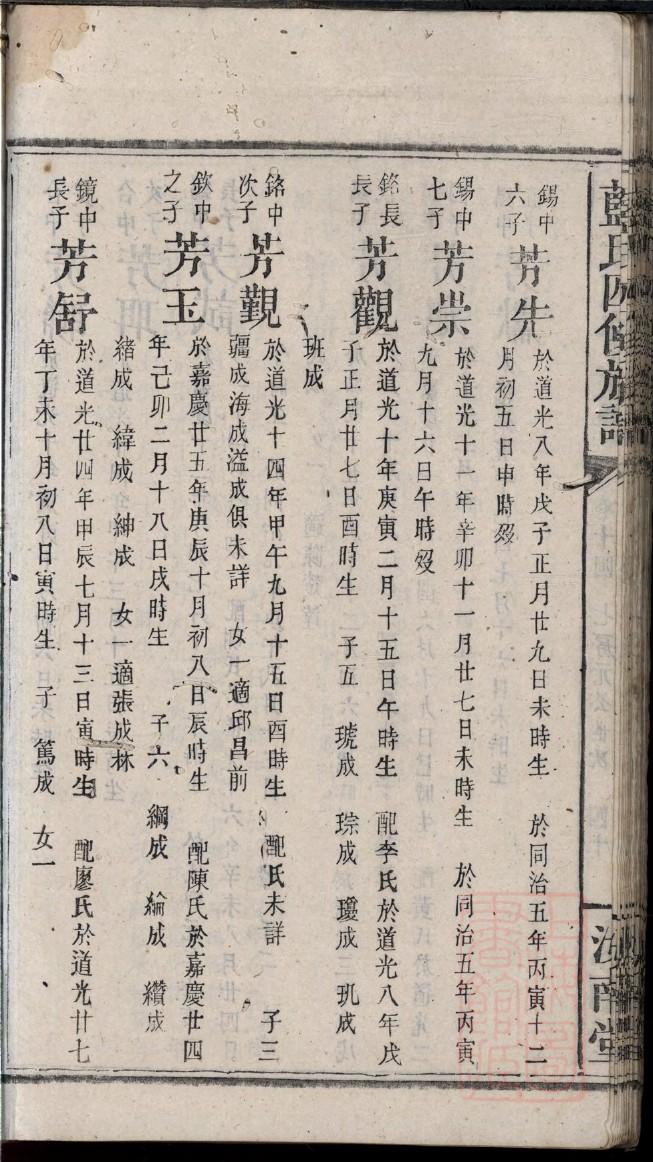 錫中
六子
芳先
於道光八年戊子正月廿九日未時生 於同治五年丙寅十二
月初五日申時歿
錫中
七子
芳崇
於道光十一年辛卯十一月廿七日未時生 於同治五年丙寅
九月十六日午時歿
銘長
長子
芳觀
於道光十年庚寅二月十五日午時生 配李氏於道光八年戊
子正月廿七日酉時生 子五 琥成 琮成 瓊成三 玌成
班成
銘中
次子
芳觀
於道光十四年甲午九月十五日酉時生 配氏未詳 子三
疆成海成溢成俱未詳 女一適邱昌前
欽中
之子
芳玉
於嘉慶廿五年庚辰十月初八日辰時生 配陳氏於嘉慶廿四
年己卯二月十八日戌時生 子六 綱成 綸成 纘成
緒成 緯成 紳成 女一適張成林
鏡中
長子
芳舒
於道光廿四年甲辰七月十三日寅時生 配廖氏於道光廿七
年丁未十月初八日寅時生 子 篤成 女一
藍氏四修族譜
汝南堂